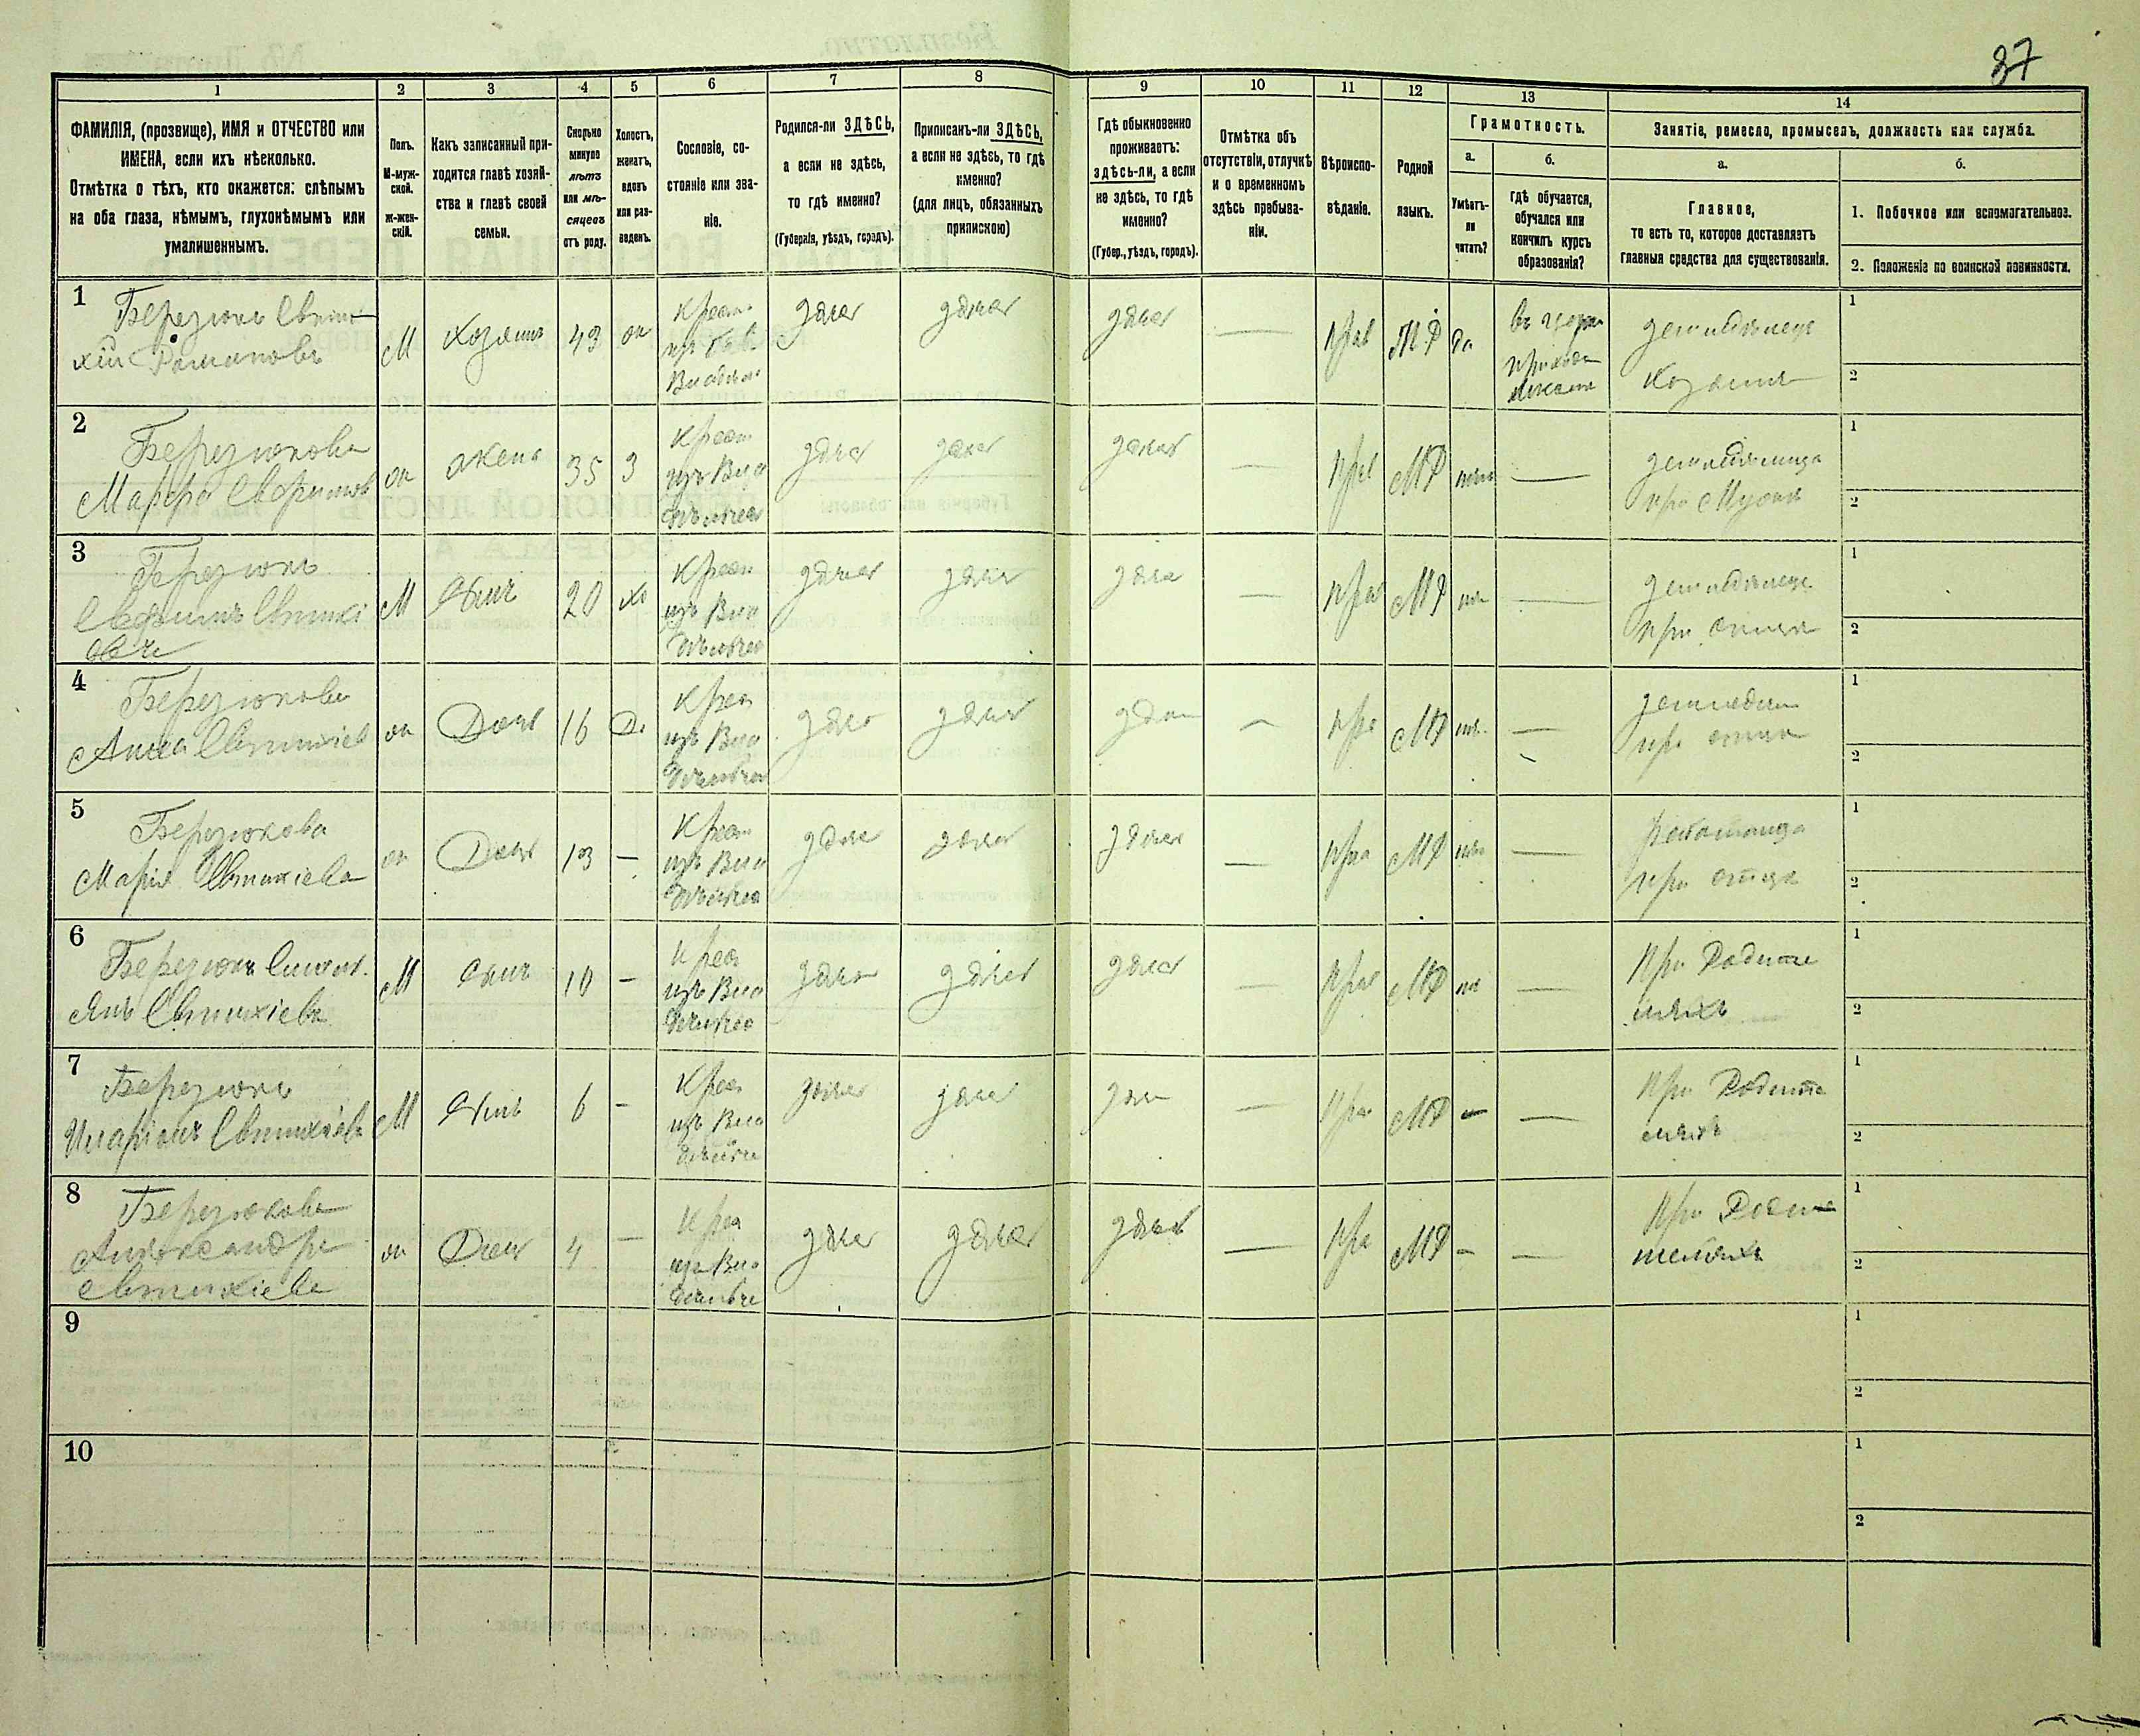 37
1 2 3 4 5 6 7 8 9 10 11 12 13 14
ФАМИЛІЯ, (прозвище), ИМЯ и ОТЧЕСТВО или
ИМЕНА, если ихъ нѣсколько.
Отмѣтка о тѣхъ, кто окажется: слѣпымъ
на оба глаза, нѣмымъ, глухонѣмымъ или
умалишеннымъ.
Полъ.
М-муж-
ской.
ж-жен-
скій.
Какъ записанный при-
ходится главѣ хозяй-
ства и главѣ своей
семьи.
Сколько
минуло
лѣтъ
или мѣ-
сяцевъ
отъ роду.
Холостъ,
женатъ,
вдовъ
или раз-
веденъ.
Сословіе, со-
стояніе или зва-
ніе.
Родился-ли ЗДѢСЬ,
а если не здѣсь,
то гдѣ именно?
(Губернія, уѣздъ, городъ).
Приписанъ-ли ЗДѢСЬ,
а если не здѣсь, то гдѣ
именно?
(для лицъ, обязанныхъ
припискою)
Гдѣ обыкновенно
проживаетъ:
здѣсь-ли, а если
не здѣсь, то гдѣ
именно?
(Губер., уѣздъ, городъ).
Отмѣтка объ
отсутствіи, отлучкѣ
и о временномъ
здѣсь пребыва-
ніи.
Вѣроиспо-
вѣданіе.
Родной
языкъ.
Грамотность.
а.
Умѣетъ-
ли
читать?
б.
гдѣ обучается,
обучался или
кончилъ курсъ
образованія?
Занятіе, ремесло, промыселъ, должность или служба.
а.
Главное,
то есть то, которое доставляетъ
главныя средства для существованія.
б.
1. Побочное или вспомогательное.
2. Положеніе по воинской повинности.
1
Березюкъ Евти-
хій Романовъ
М
Хозяинъ
43
здѣсь
здѣсь
здѣсь
—
прав
МР
да
въ церк
приход
школѣ
земледѣлецъ
хозяинъ
1
2
2
Березюкова
Марфа Евфимов
жена
35
З
Крест
изъ Вла
дѣльчес
здѣс
здѣс
здѣсь
—
Прав
МР
нѣтъ
—
земледѣлица
при Мужѣ
1
2
3
Березюкъ
Евфимъ Евтихі
евъ
М
Сынъ
20
хо
Крест
изъ Вла
дѣльчес
здѣсь
здѣсь
здѣс
—
прав
МР
—
земледѣлецъ
при отцѣ
1
2
4
Березюкова
Анна Евтихіев
Дочь
16
Д.
Крес
изъ Вла
дѣльчес
здѣс
здѣсь
здѣс
—
Пра
МР
—
земледѣл
при отцѣ
1
2
5
Березюкова
Марія Евтихіева
Дочь
13
—
Крест
изъ Вла
дѣльчес
здѣс
здѣсь
здѣсь
—
Пра
МР
—
работница
при отцѣ
1
2
6
М
Сынъ
10
—
Крес
изъ Вла
здѣс
здѣсь
здѣс
—
Прав
МР
—
При Родите
ляхъ
1
2
7
Березюкъ
Иларіонъ Евтихіевъ
М
Сынъ
6
—
Крес
изъ Вла
здѣсь
здѣсь
здѣс
—
Пра
МР
—
—
При Родите
ляхъ
1
2
8
Березюкова
Александра
Евтихіева
Дочь
4
—
Крес
изъ Вла
здѣсь
здѣсь
здѣсь
—
Пра
МР
—
—
1
2
9
1
2
10
1
2